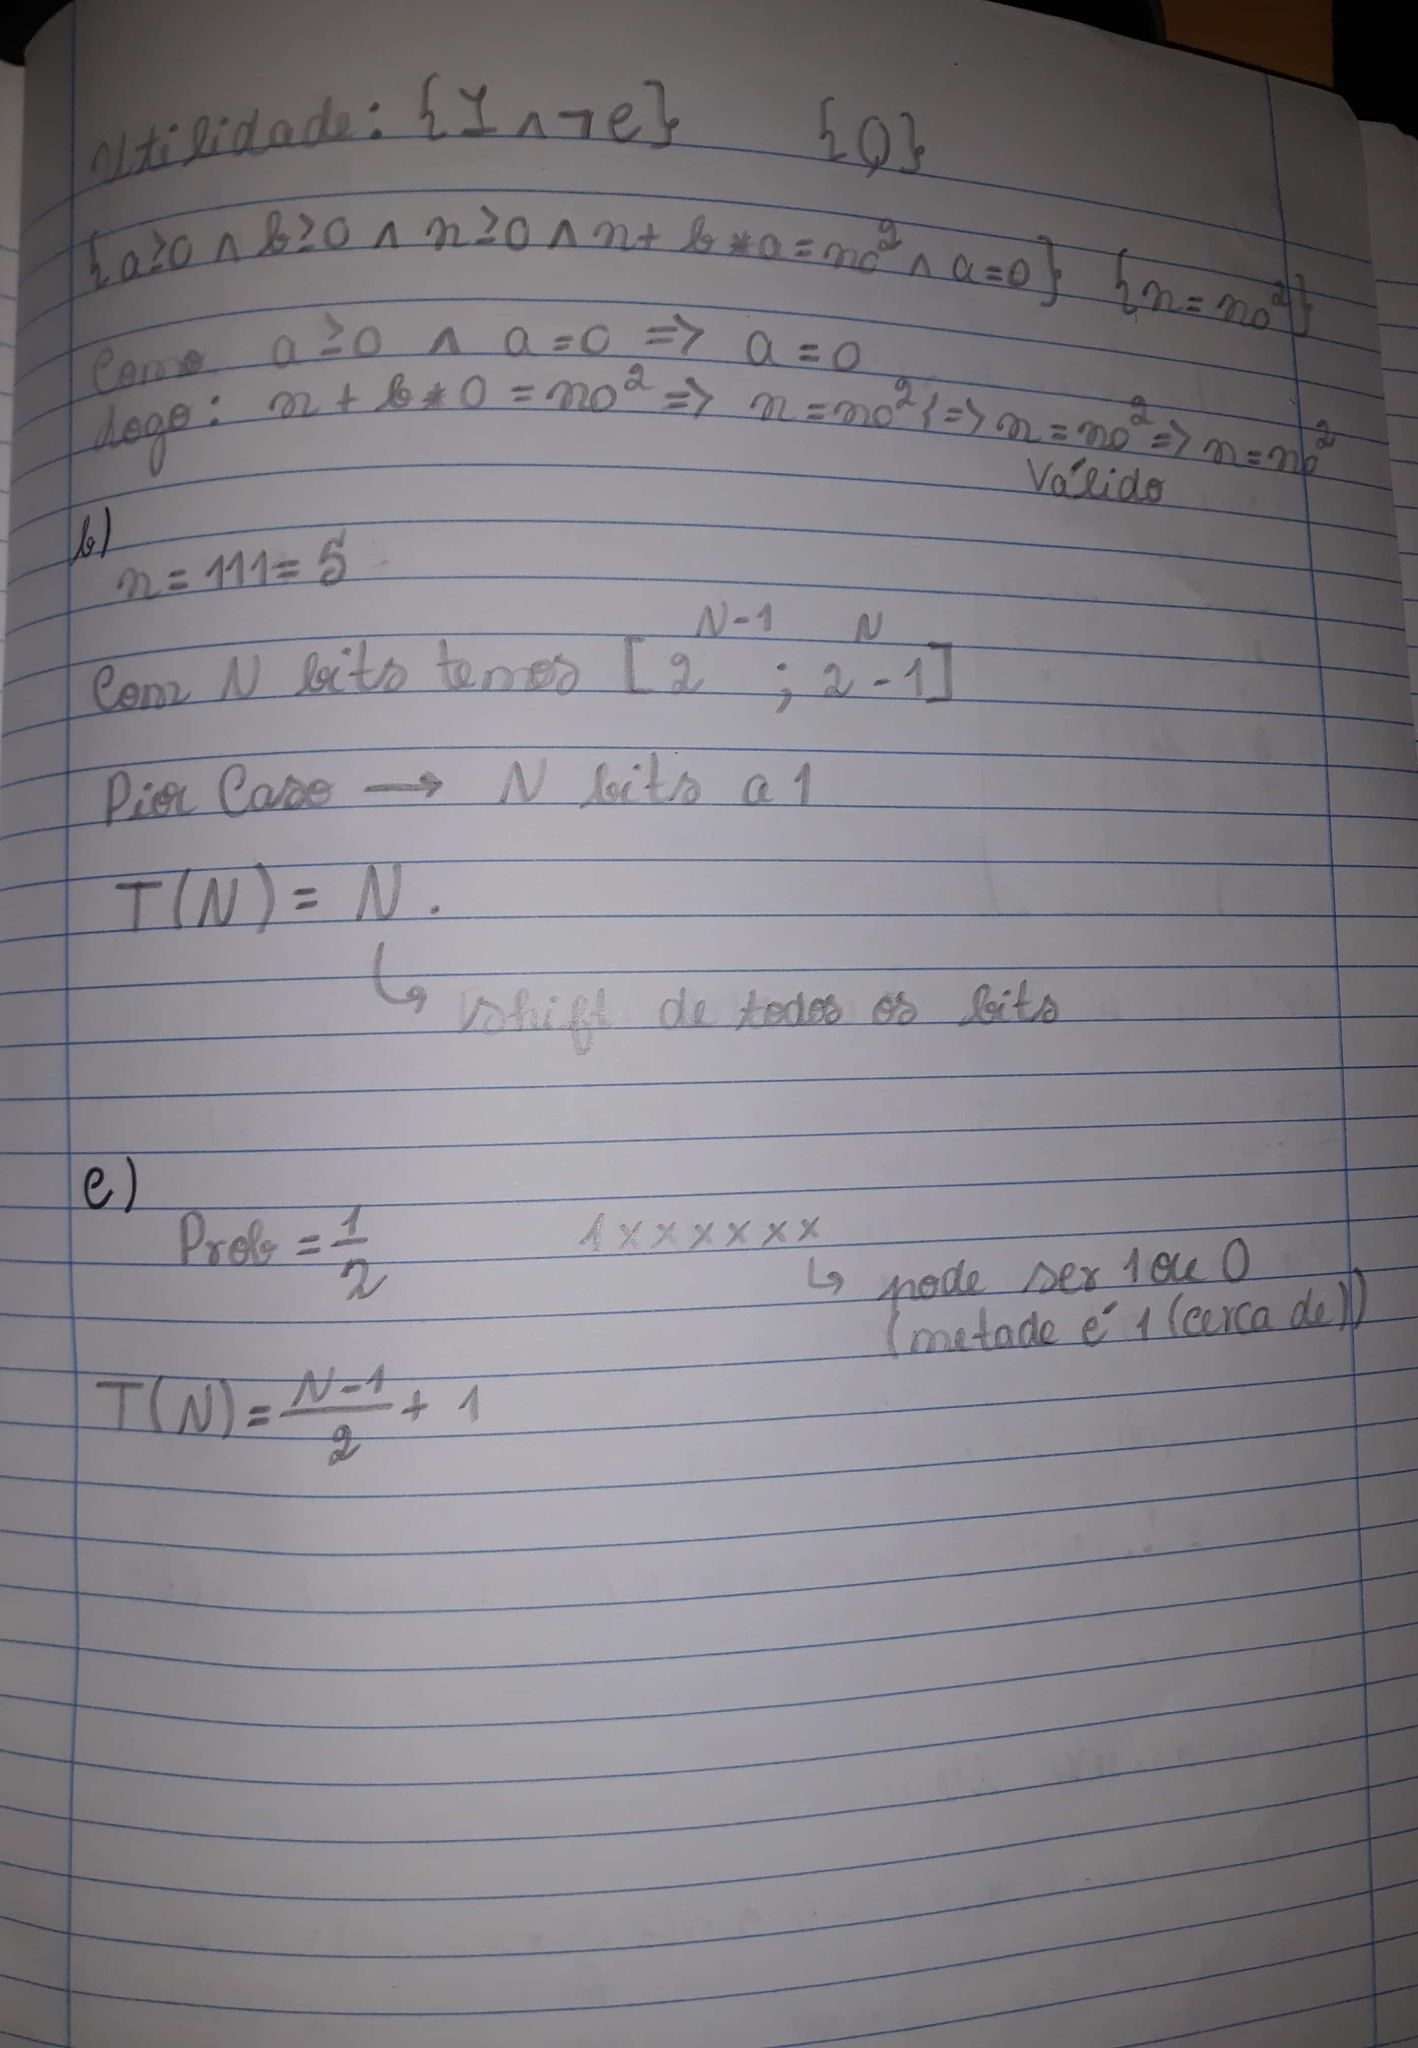 Utilidade: {I ∧ ¬e} {Q}
{a≥0 ∧ b≥0 ∧ r≥0 ∧ r + b*a = n0² ∧ a=0} {r = n0²}
Como a≥0 ∧ a=0 => a=0
Logo: r + b*0 = n0² => r = n0² {=> r = n0² => r = n0²
Válido
b)
n = 111 = 5
Com N bits temos [2^(N-1) ; 2^N - 1]
Pior Caso → N bits a 1
T(N) = N.
↳ shift de todos os bits
c)
Prob = 1/2 1xxxxxx
↳ pode ser 1 ou 0
(metade é 1 (cerca de))
T(N) = (N-1)/2 + 1